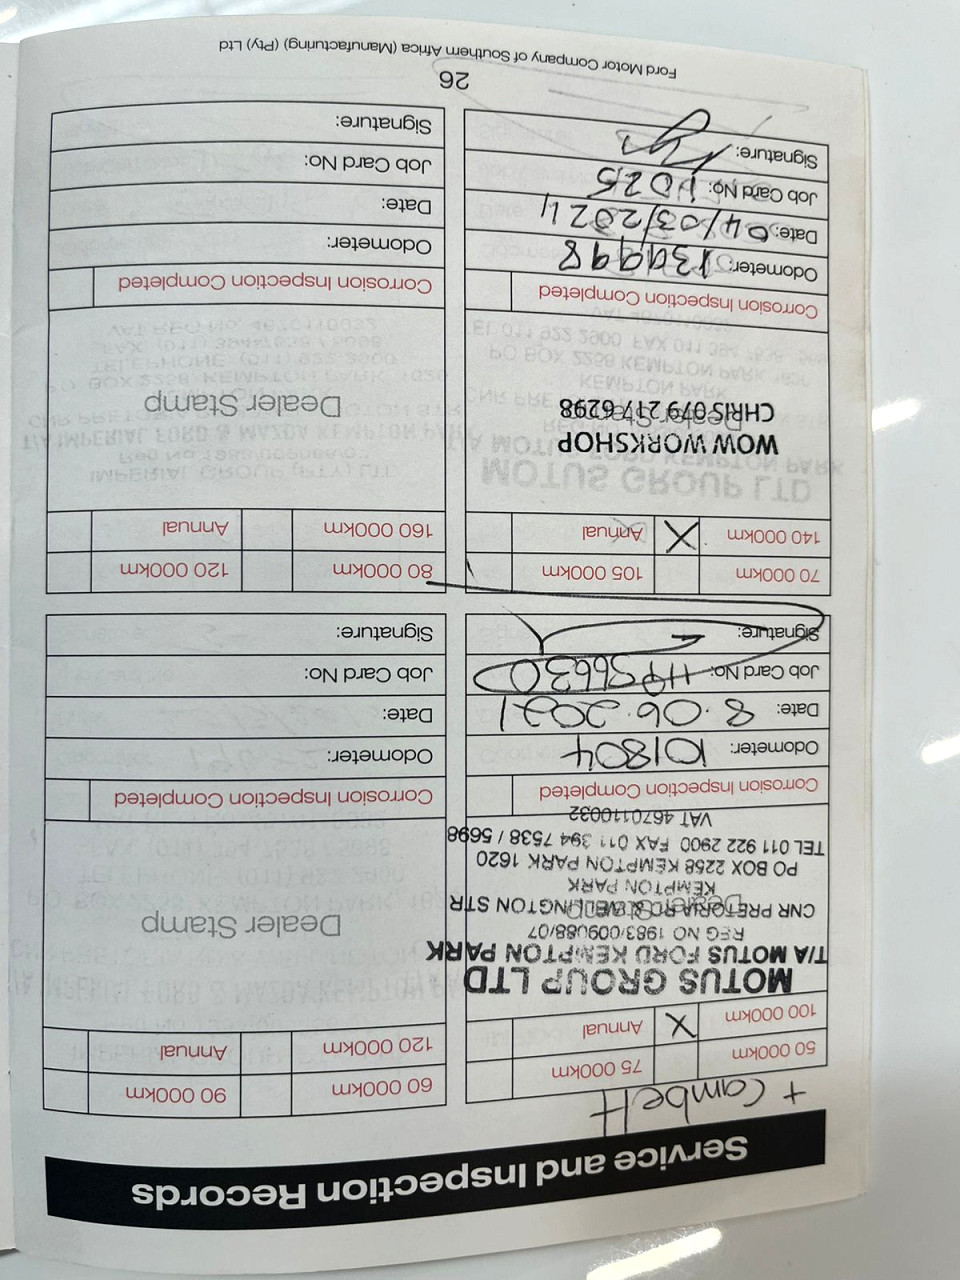 Service and Inspection Records
+ Cambelt
50 000km 75 000km
100 000km X Annual
MOTUS GROUP LTD
T/A MOTUS FORD KEMPTON PARK
REG NO 1983/009088/07
CNR PRETORIA RD & WELLINGTON STR
Dealer Stamp
KEMPTON PARK
PO BOX 2258 KEMPTON PARK 1620
TEL 011 922 2900 FAX 011 394 7538 / 5698
VAT 4670110032
Corrosion Inspection Completed
Odometer: 101804
Date: 8.06.2021
Job Card No: HP56630
Signature:
60 000km 90 000km
120 000km Annual
Dealer Stamp
Corrosion Inspection Completed
Odometer:
Date:
Job Card No:
Signature:
70 000km 105 000km
140 000km X Annual
WOW WORKSHOP
Dealer Stamp
CHRIS 079 217 6298
Corrosion Inspection Completed
Odometer: 139998
Date: 04/03/2024
Job Card No: 11025
Signature:
80 000km 120 000km
160 000km Annual
Dealer Stamp
Corrosion Inspection Completed
Odometer:
Date:
Job Card No:
Signature:
26
Ford Motor Company of Southern Africa (Manufacturing) (Pty) Ltd